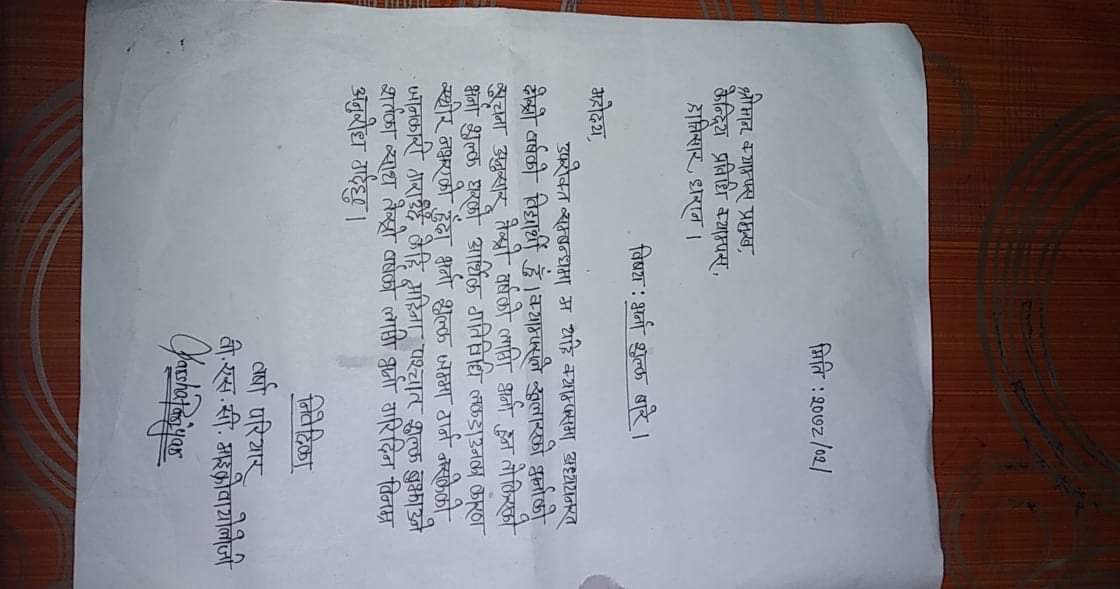 मिति : २०७२/०२/
श्रीमान क्याम्पस प्रमुख,
केन्द्रिय प्रविधि क्याम्पस,
हात्तिसार धरान ।
विषय : भर्ना शुल्क बारे ।
महोदय,
उपरोक्त सम्बन्धमा म यहि क्याम्पसमा अध्ययनरत
दोस्रो वर्षको विद्यार्थी हुँ । क्याम्पसले खुलाएको भर्नाको
सूचना अनुसार तेस्रो वर्षको लागि भर्ना हुन तोकिएको
भर्ना शुल्क घरको आर्थिक गतिविधि लकडाउनका कारण
कमजोर भएको हुँदा भर्ना शुल्क जम्मा गर्न नसकेको
जानकारी गराउँदै केहि महिना पश्चात शुल्क बुझाउने
शर्तका साथ तेस्रो वर्षको लागि भर्ना गरिदिन विनम्र
अनुरोध गर्दछु ।
निवेदिका
वर्षा परियार
वी. एस. सी. माइक्रोवायोलोजी